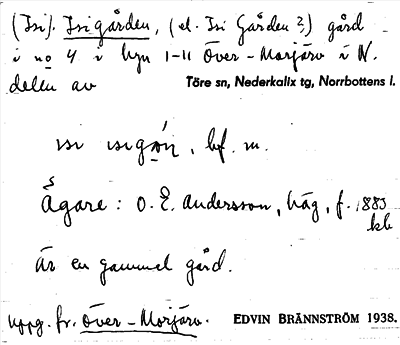 (Isi). Isigården, (el. Isi Gården?,) gård
i no 4 i byn 1-11 Över-Morjärv i N.
delen av Töre sn, Nederkalix tg, Norrbottens l.
isi isigón, bf. m.
Ägare: O. E. Andersson, häg, f. 1883
kb
Är en gammal gård.
uppg. fr. Över-Morjärv. EDVIN BRÄNNSTRÖM 1938.